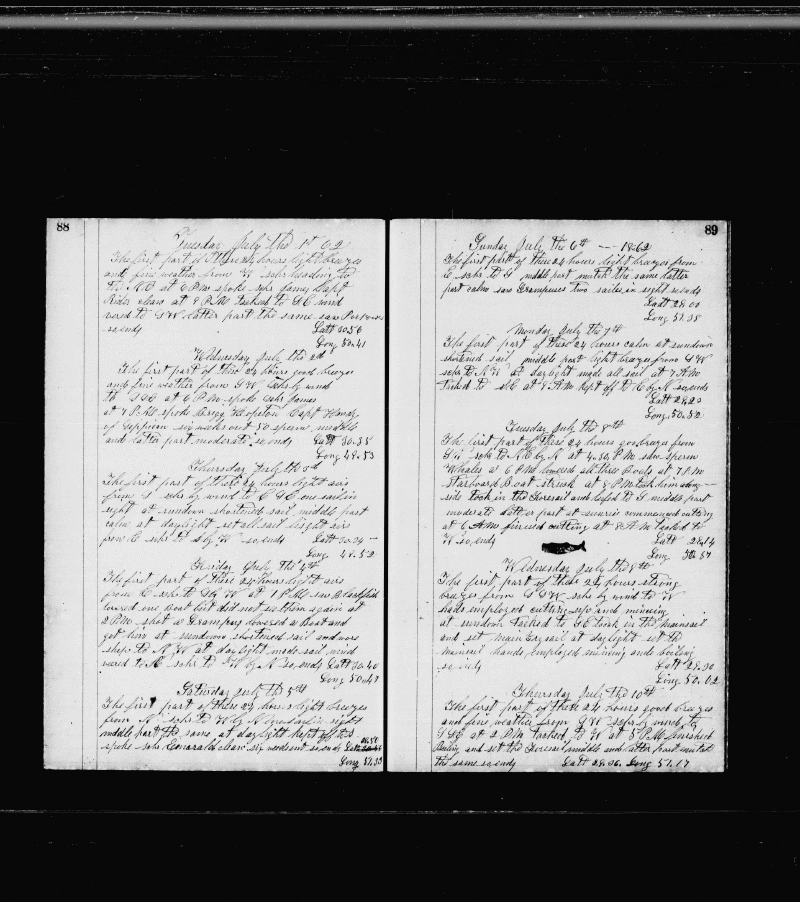 88
Tuesday July the 1st 62
The first part of these 24 hours light breezes
and fine weather from W schr heading to
the N.E at 6 P.M spoke schr James Capt
Rider clean at 8 P.M Tacked to S.E wind
vered to S W latter part the same saw Porpoises
so ends Latt 30.56
Long 50.41
Wednesday July the 2d
The first part of these 24 hours good breezes
and fine weather from S W schr by wind
to S S E at 6 P.M spoke schr James
at 7 P.M spoke Capt Handy
of Sippican six weeks out 50 sperm middle
and latter part moderate so ends Latt 30.35
Long 49.53
Thursday July the 3d
The first part of these 24 hours light airs
from S schr by wind to E S E one sail in
sight at sundown shortened sail middle part
calm at daylight set all sail light airs
from E schr to S by W so ends Latt 30.34
Long 49.52
Friday July the 4th
The first part of these 24 hours light airs
from E schr to S by W at 1 P.M saw Blackfish
lowered one Boat but did not see them again at
2 P.M shot a Grampus lowered a Boat and
got him at sundown shortened sail and wore
ship to N W at daylight made sail wind
vered to N schr to W by N so ends Latt 30.40
Long 50.47
Saturday July the 5th
The first part of these 24 hours light breezes
from N schr to W by N in sight
middle part the same at daylight kept off to S
spoke schr Emerald clean six weeks out so ends Latt
Long 51.33
89
Sunday July the 6th --- 1862
The first part of these 24 hours light breezes from
E schr to S middle part mutch the same latter
part calm saw Grampuses Two sailes in sight so ends
Latt 28.00
Long 51.38
Monday July the 7th
The first part of these 24 hours calm at sundown
shortened sail middle part light breezes from S W
schr to N W at daylight made all sail at 7 A.M
tacked to S E at 9 A.M kept off to E by N so ends
Latt 28.20
Long 50.52
Tuesday July the 8th
The first part of these 24 hours good breezes from
S W schr to N E by N at 4.30 P.M saw sperm
Whales at 6 P.M lowered all three Boats at 7 P.M
Starboard Boat struck at 8 P.M took him along
side took in the foresail and luffed to S middle part
moderate latter part at sunrise commenced cutting
at 6 A.M finised cutting at 8 A.M tacked to
W so ends Latt 28.14
Long 50.57
Wednesday July the 9th
The first part of these 24 hours strong
breezes from S S W schr by wind to W
hands employed cutting up and mincing
at sundown tacked to S E took in the mainsail
and set main trysail at daylight set the
mainsail hands employed mincing and boiling
so ends Latt 28.30
Long 50.02
Thursday July the 10th
The first part of these 24 hours good breezes
and fine weather from S W schr by wind to
S S E at 2 P.M tacked to W at 5 P.M finished
Boiling and set the foresail middle and latter part mutch
the same so ends Latt 28.36 Long 51.17